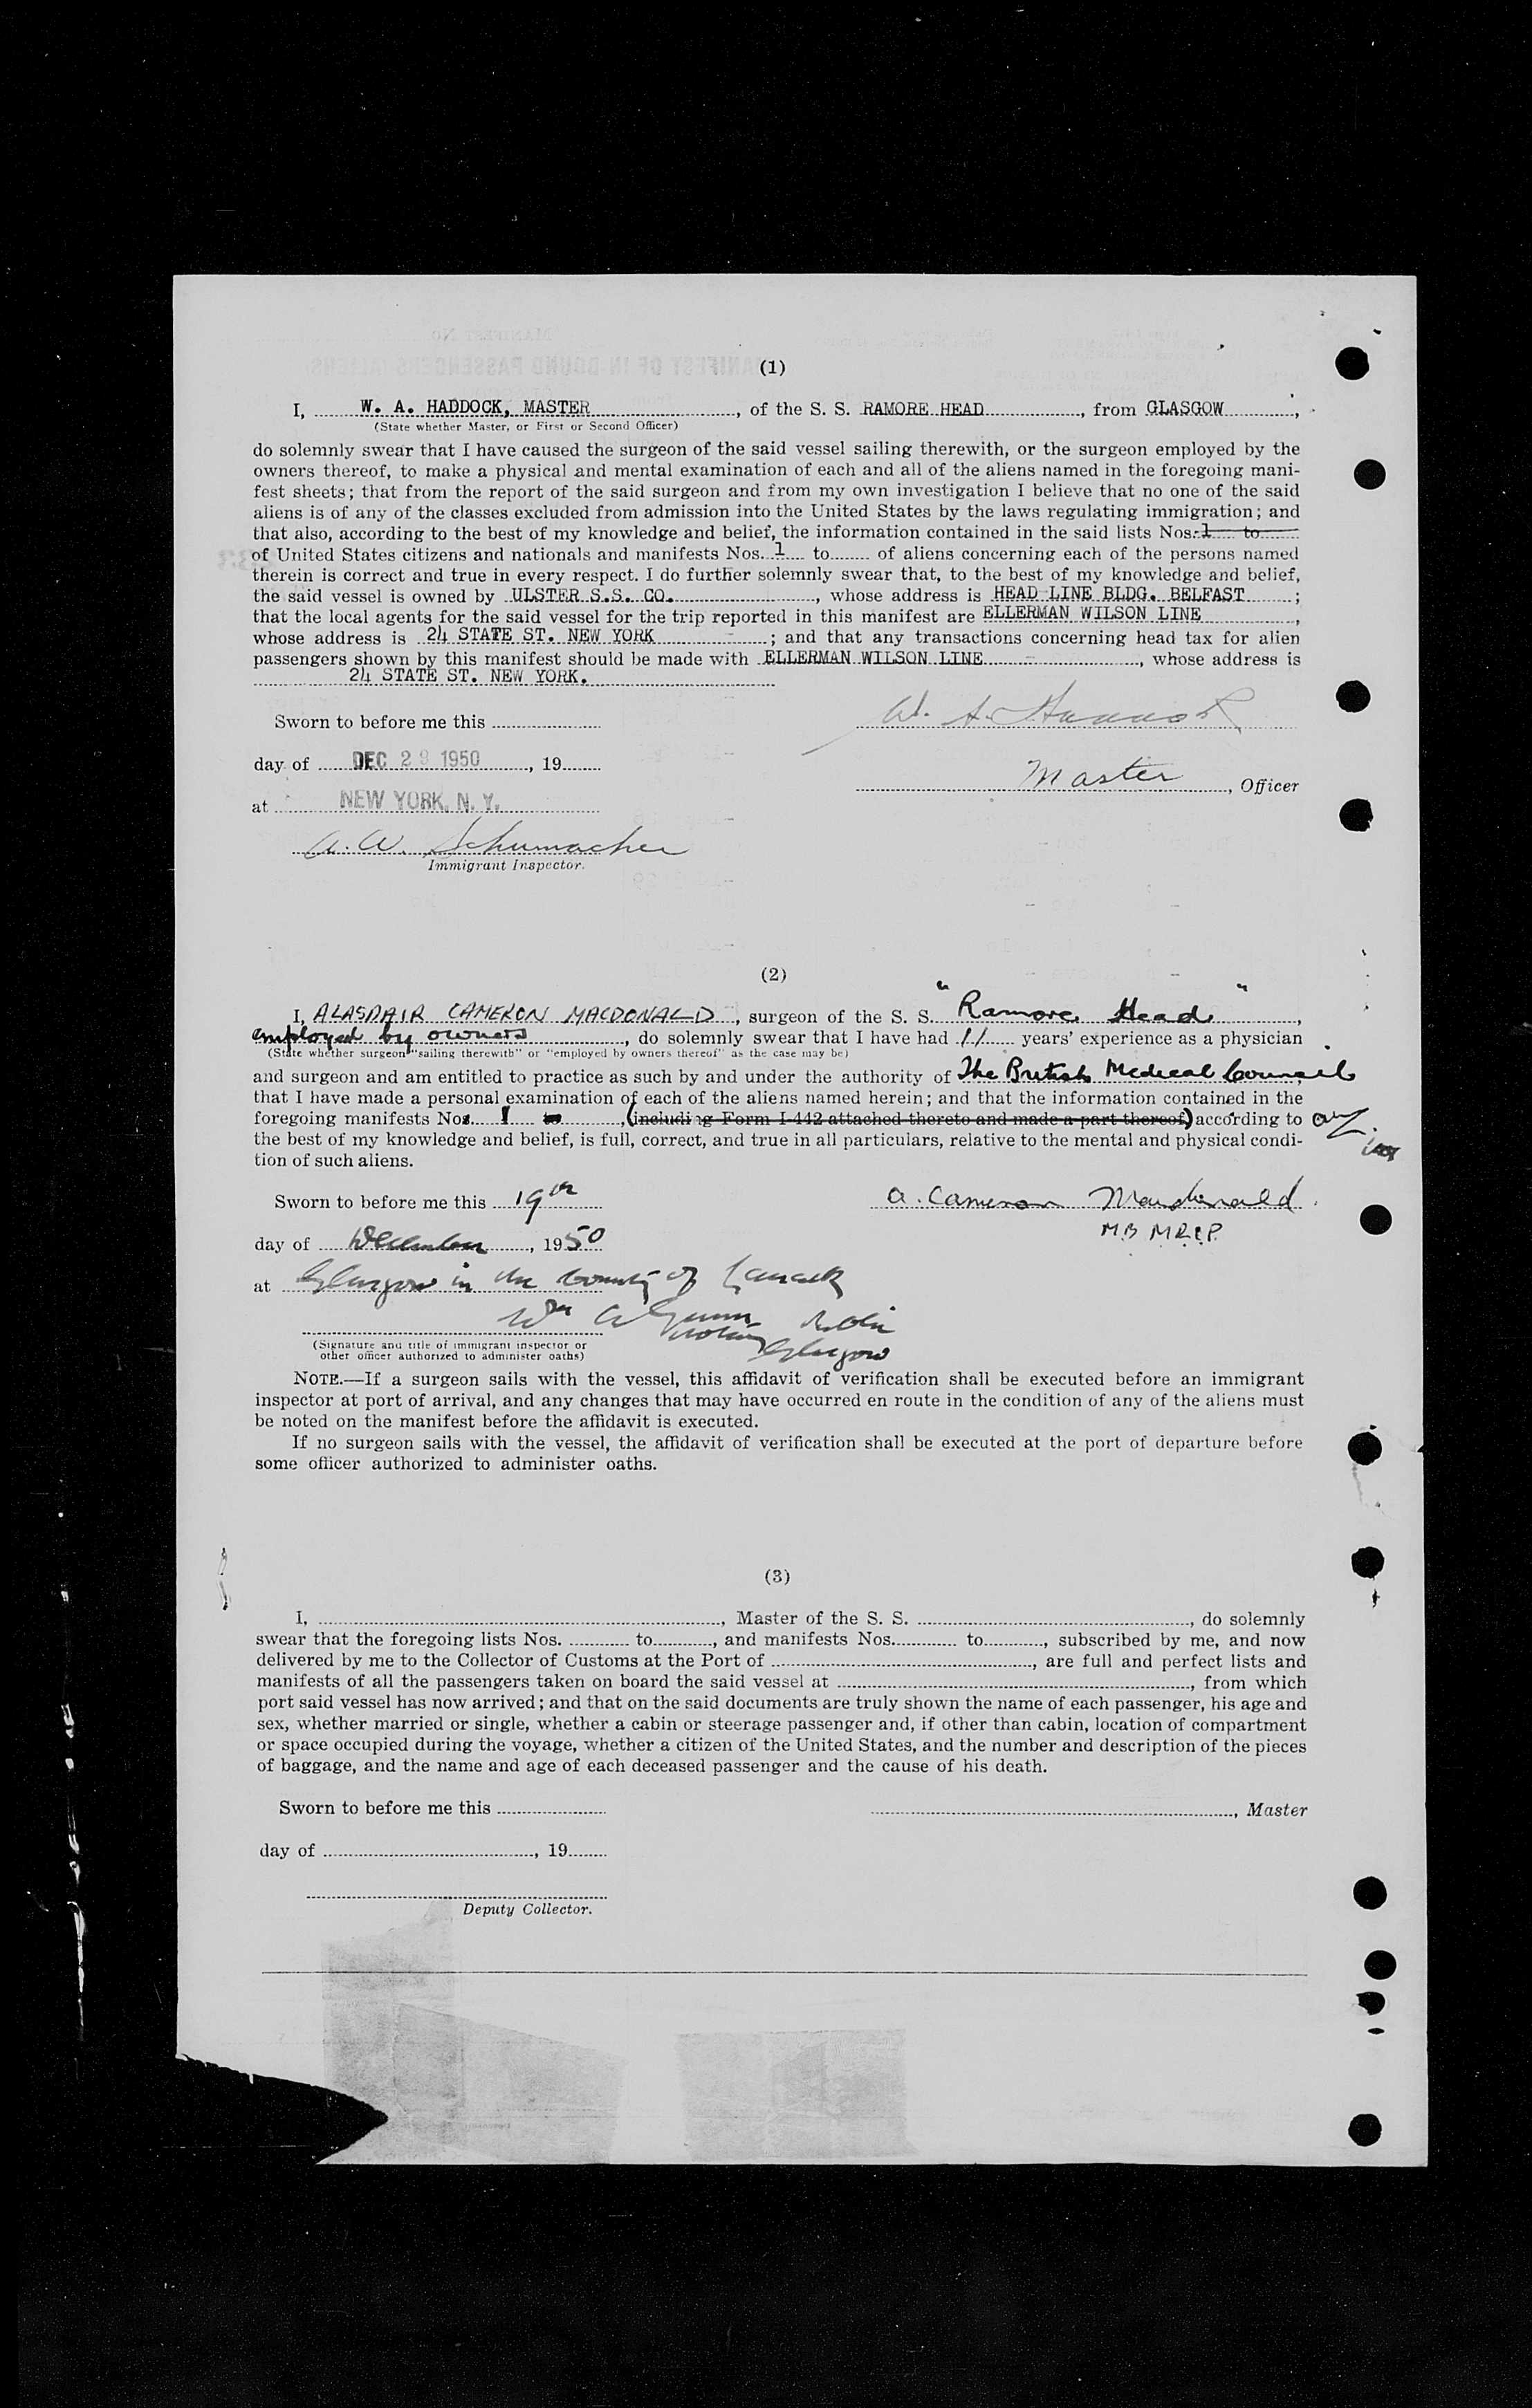 (1)
I, W. A. HADDOCK, MASTER, of the S. S. RAMORE HEAD, from GLASGOW,
(State whether Master, or First or Second Officer)
do solemnly swear that I have caused the surgeon of the said vessel sailing therewith, or the surgeon employed by the
owners thereof, to make a physical and mental examination of each and all of the aliens named in the foregoing mani-
fest sheets; that from the report of the said surgeon and from my own investigation I believe that no one of the said
aliens is of any of the classes excluded from admission into the United States by the laws regulating immigration; and
that also, according to the best of my knowledge and belief, the information contained in the said lists Nos. 1 to
of United States citizens and nationals and manifests Nos. 1 to of aliens concerning each of the persons named
therein is correct and true in every respect. I do further solemnly swear that, to the best of my knowledge and belief,
the said vessel is owned by ULSTER S.S. CO., whose address is HEAD LINE BLDG. BELFAST;
that the local agents for the said vessel for the trip reported in this manifest are ELLERMAN WILSON LINE,
whose address is 24 STATE ST. NEW YORK; and that any transactions concerning head tax for alien
passengers shown by this manifest should be made with ELLERMAN WILSON LINE, whose address is
24 STATE ST. NEW YORK.
Sworn to before me this
W. A. Haddock
day of DEC 29 1950, 19
Master, Officer
at NEW YORK, N. Y.
A. W. Schumacher
Immigrant Inspector.
(2)
I, ALASDAIR CAMERON MACDONALD, surgeon of the S. S. "Ramore Head",
employed by owners, do solemnly swear that I have had 11 years' experience as a physician
(State whether surgeon "sailing therewith" or "employed by owners thereof" as the case may be)
and surgeon and am entitled to practice as such by and under the authority of The British Medical Council
that I have made a personal examination of each of the aliens named herein; and that the information contained in the
foregoing manifests Nos. 1 to, (including Form I-442 attached thereto and made a part thereof) according to
the best of my knowledge and belief, is full, correct, and true in all particulars, relative to the mental and physical condi-
tion of such aliens.
Sworn to before me this 19th
A. Cameron Macdonald
M.B M.R.C.P.
day of December, 1950
at Glasgow in the County of Lanark
Wm Gunn
Notary Public
Glasgow
(Signature and title of immigrant inspector or
other officer authorized to administer oaths)
NOTE.—If a surgeon sails with the vessel, this affidavit of verification shall be executed before an immigrant
inspector at port of arrival, and any changes that may have occurred en route in the condition of any of the aliens must
be noted on the manifest before the affidavit is executed.
If no surgeon sails with the vessel, the affidavit of verification shall be executed at the port of departure before
some officer authorized to administer oaths.
(3)
I, , Master of the S. S. , do solemnly
swear that the foregoing lists Nos. to, and manifests Nos. to, subscribed by me, and now
delivered by me to the Collector of Customs at the Port of , are full and perfect lists and
manifests of all the passengers taken on board the said vessel at , from which
port said vessel has now arrived; and that on the said documents are truly shown the name of each passenger, his age and
sex, whether married or single, whether a cabin or steerage passenger and, if other than cabin, location of compartment
or space occupied during the voyage, whether a citizen of the United States, and the number and description of the pieces
of baggage, and the name and age of each deceased passenger and the cause of his death.
Sworn to before me this
, Master
day of , 19
Deputy Collector.